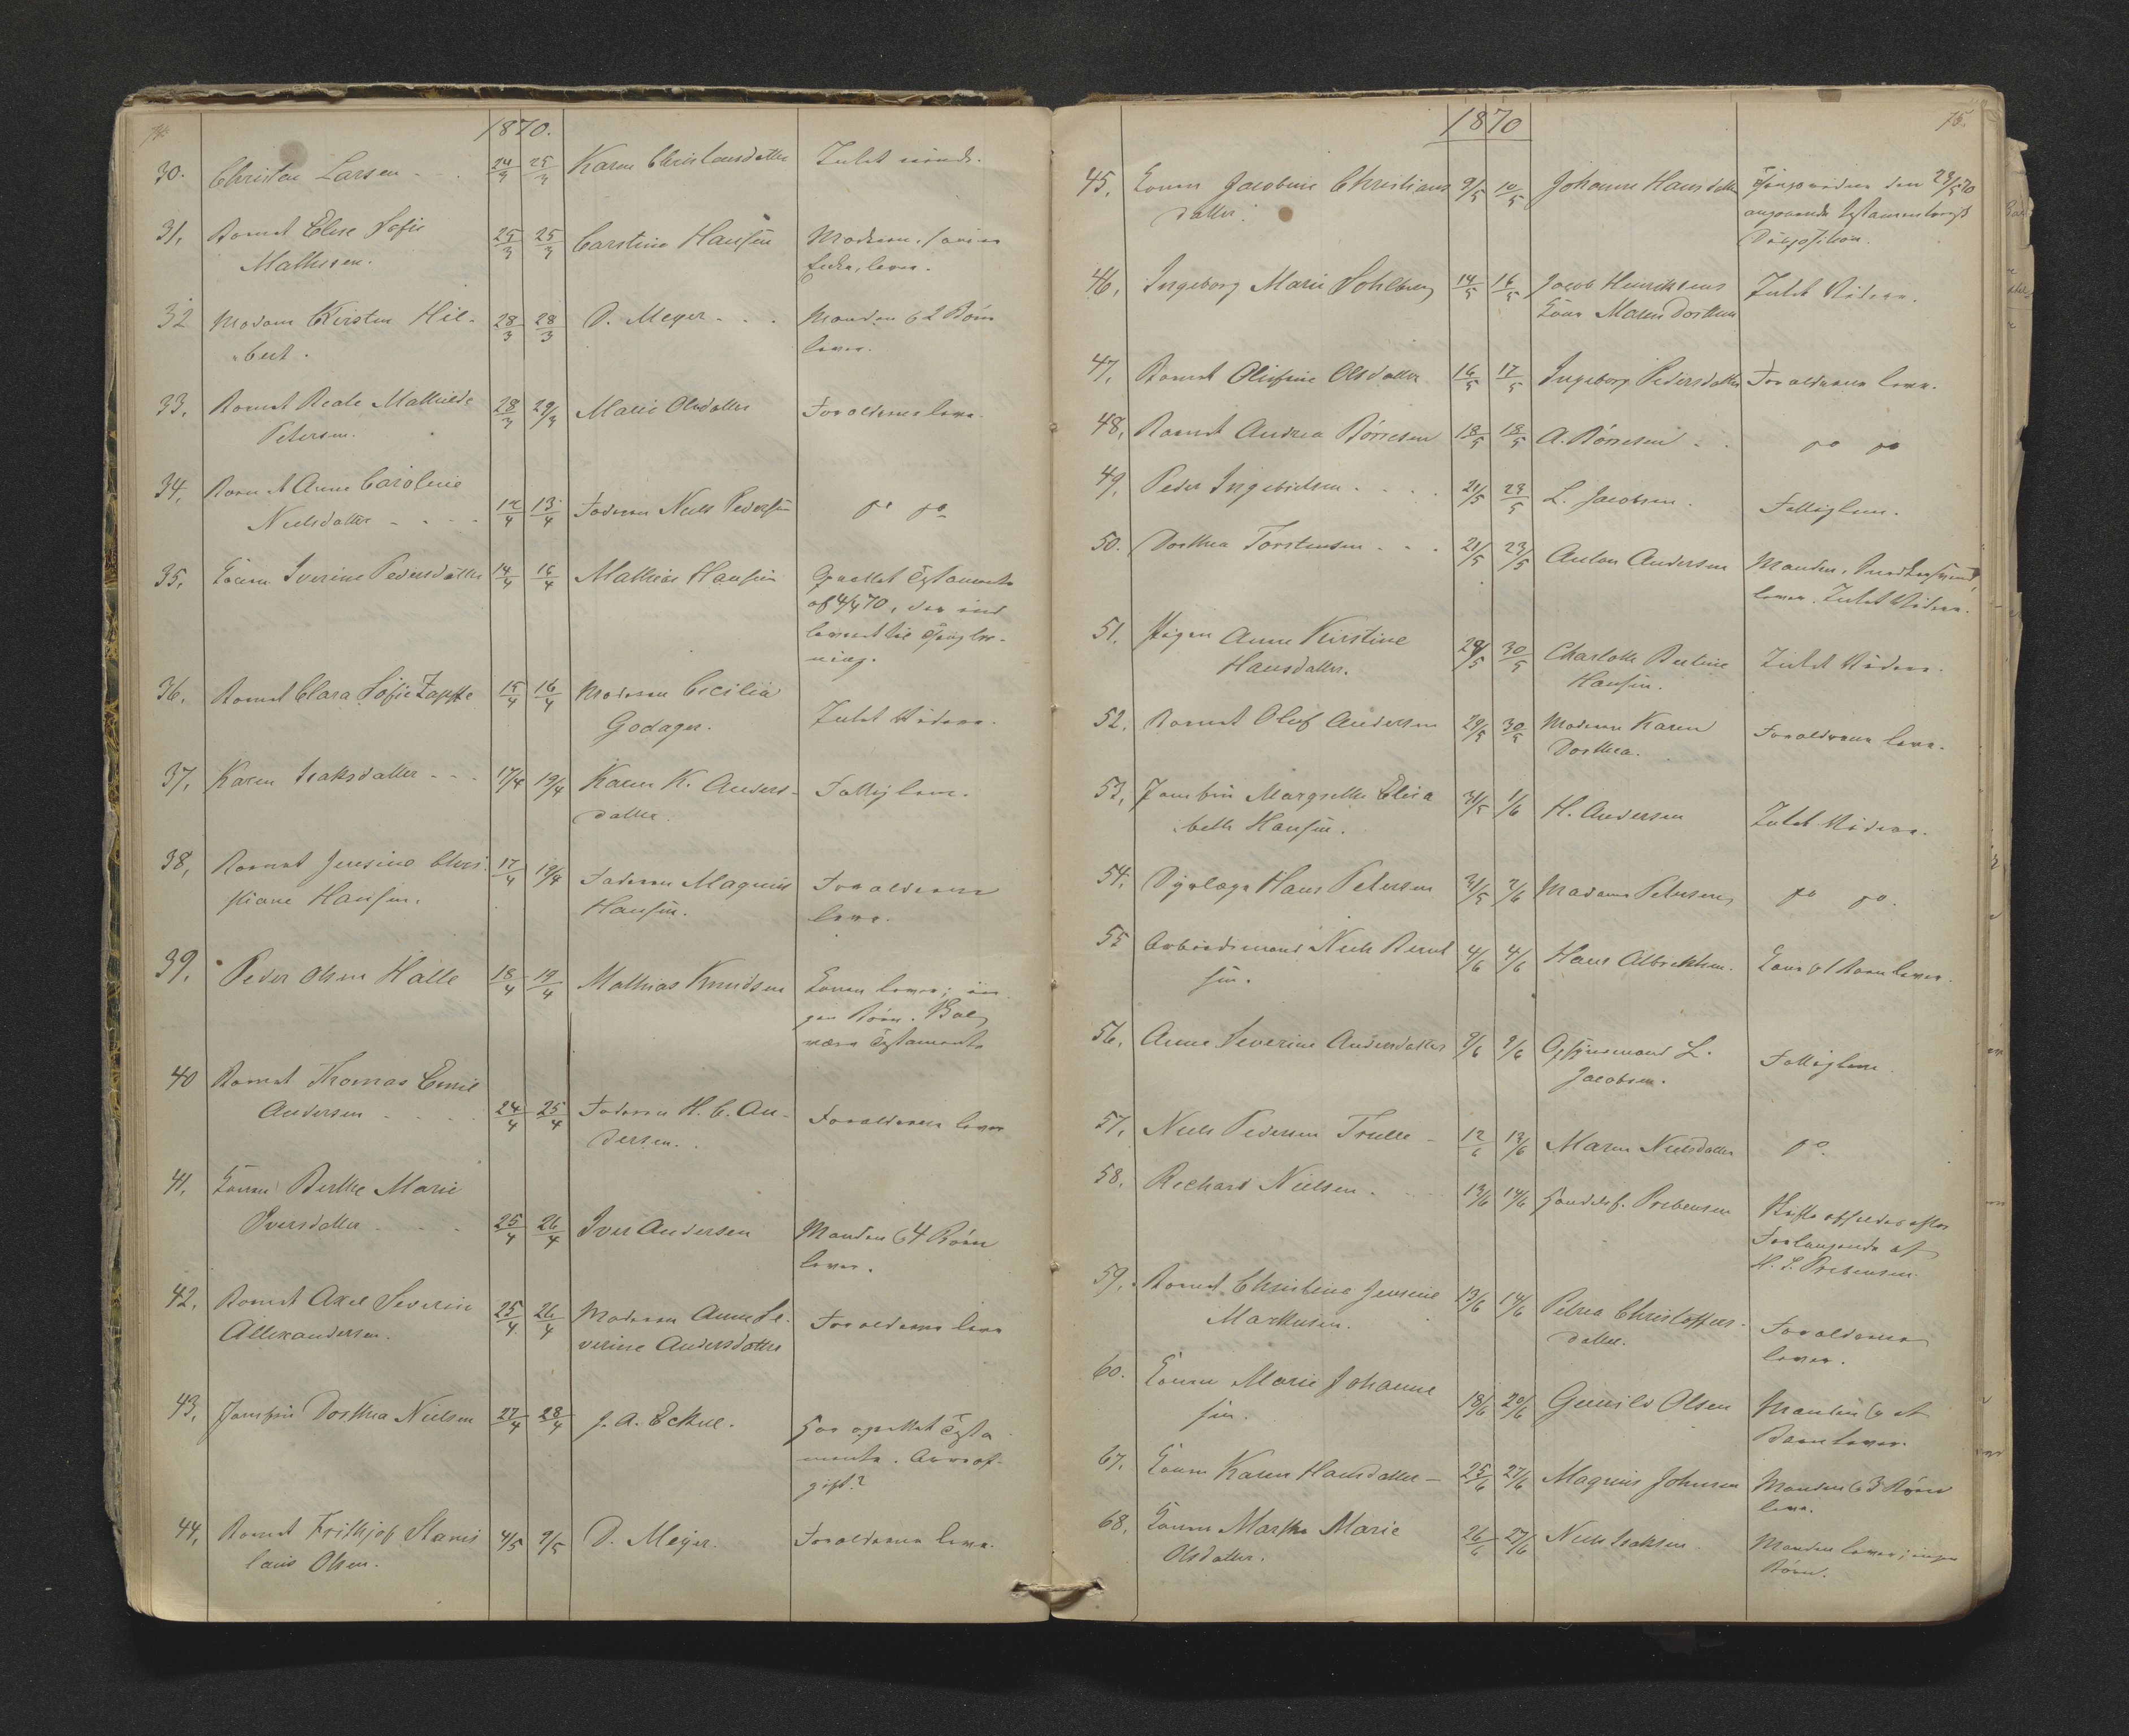 74.
1870.
30. Christen Larsen - - 24/3 25/3 Karen Christensdatter Intet
31. Barnet Elise Sofie 25/3 25/3 Carstine Hansen Moderen,
Mathisen. lever.
32 Madam Kirsten Hil- 28/3 28/3 D. Meyer - - - Manden & 2 Børn
bert. lever.
33. Barnet Beate Mathilde 28/3 29/3 Marie Olsdatter Forældrene leve.
Petersen.
34. Barnet Anne Caroline
Nielsdatter - - - - 12/4 13/4 Faderen Niels Pedersen do do
35. Konen Iverine Pedersdatter 14/4 16/4 Mathias Hansen Oprettet Testamente
af 4/4 70, der ind
leveret til Tinglæs-
ning.
36. Barnet Clara Sofie Zapffe 15/4 16/4 Moderen Cecilia
Godager. Intet Videre.
37. Karen Isaksdatter - - - 17/4 19/4 Karen K. Anders- Fattiglem.
datter.
38. Barnet Jensine Chri- 17/4 19/4 Faderen Magnus Forældrene
stiane Hansen. Hansen. leve.
39. Peder Olsen Halle 18/4 19/4 Mathias Knudsen Konen lever; in
gen Børn.
være Testamente
40 Barnet Thomas Emil
Andersen - - - - 24/4 25/4 Faderen H. C. An- Forældrene lever
dersen.
41. Konen Berthe Marie
Iversdatter - - - 25/4 26/4 Iver Andersen Manden & 4 Børn
lever.
42. Barnet Axel Severin 25/4 26/4 Moderen Anne Se- Forældrene leve
Allexandersen. verine Andersdatter
43. Jomfru Dorthea Nielsen 27/4 28/4 J. A. Eckell. Har oprettet Testa
mente. Arveaf-
gift?
44. Barnet Frithjof Stanis 4/5 9/5 D. Meyer. Forældrene leve.
laus Olsen.
75.
1870
45. Konen Jacobine Christians 9/5 10/5 Johanne Hansdatter den 28/5 70
datter. angaaende testamentarisk
Disposition.
46. Ingeborg Marie Sohlberg 14/5 16/5 Jacob Henriksens Intet Videre.
Kone Maren Dorthea
47. Barnet Olufine Olsdatter 16/5 17/5 Ingeborg Pedersdatter Forældrene leve.
48. Barnet Andrea Børresen 18/5 18/5 A. Børresen - - do do
49. Peder Ingebrigtsen - - - 21/5 23/5 L. Jacobsen. Fattiglem.
50. Dorthea Torstensen - - - 21/5 23/5 Anton Andersen Manden,
lever. Intet Videre.
51. Pigen Anne Kirstine 29/5 30/5 Charlotte Bertine Intet Videre.
Hansdatter. Hansen.
52. Barnet Oluf Andersen 29/5 30/5 Moderen Karen Forældrene leve.
Dorthea.
53. Jomfru Margrethe Elisa 31/5 1/6 H. Andersen Intet Videre.
beth Hansen.
54. Dyrlæge Hans Petersen 31/5 2/6 Madame Petersen do do.
55 Arbeidsmand Niels Bernt 4/6 4/6 Hans Albrektsen. Kone & 1 Barn lever.
sen.
56. Anne Severine Andersdatter 9/6 9/6 Opsynsmand L. Fattiglem.
Jacobsen.
57. Niels Pedersen Trulle - 12/6 13/6 Maren Nielsdatter do.
58. Rechard Nielsen. - - 13/6 14/6 Handelsf. Prebensen Skifte afholdes efter
Forlangende af
H. L. Prebensen.
59. Barnet Christine Jensine 13/6 14/6 Petrea Christoffers- Forældrene
Markusen. datter. lever.
60. Konen Marie Johanne
sen. 18/6 20/6 Gunild Olsen Manden & et
Barn lever.
67. Konen Karen Hansdatter - 25/6 27/6 Magnus Johnsen Manden & 3 Børn
leve.
68. Konen Marthe Marie 26/6 27/6 Niels Isaksen. Manden lever; ingen
Olsdatter. Børn.